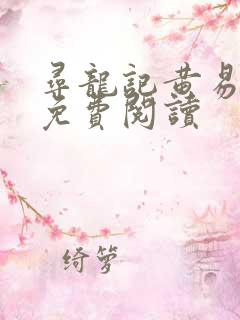 尋龍記黄易
免費閱讀
绮萝